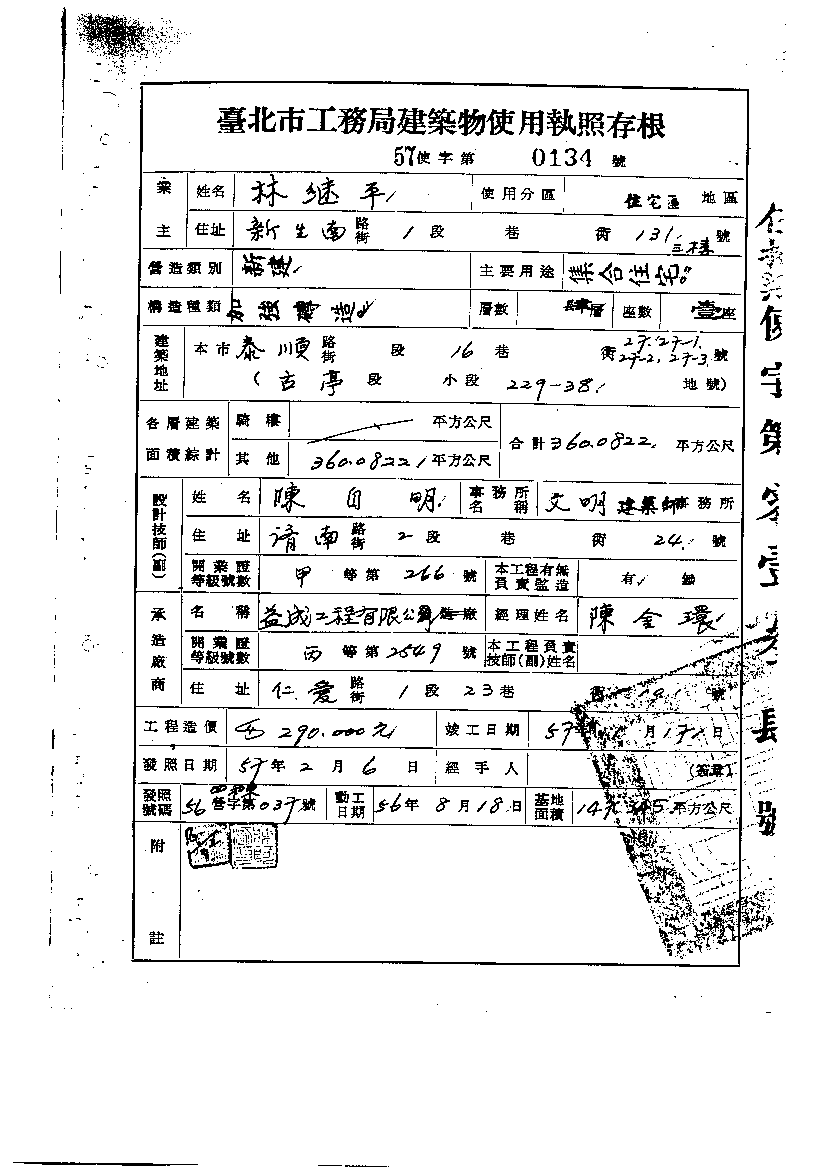 臺北市工務局建築物使用執照存根
57使字第 0134 號
業主 姓名 林继平 使用分區 住宅區 地區
住址 新生南路街 1段 巷 街 131 三樓 號
營造類別 新建 主要用途 集合住宅
構造種類 加強磚造 層數 肆層 座數 壹座
建築地址 本市 泰順路街 段 16巷 街 27.27-1. 27-2, 27-3. 號
(古亭段 小段 229-38 地號)
各層建築面積綜計 騎樓 平方公尺 合計 360.0822 平方公尺
其他 360.0822 平方公尺
設計技師(副) 姓名 陳自明 事務所名稱 文明建築師事務所
住址 濟南路街 2段 巷 街 24 號
開業證等級號數 甲等第 266 號 本工程有無負責監造 有 無
承造廠商 名稱 益成工程有限公司 造廠 經理姓名 陳金環
開業證等級號數 丙等第 2549 號 本工程負責技師(副)姓名
住址 仁愛路街 1段 23巷 街 號
工程造價 290.000元 竣工日期 57年 月 17日
發照日期 57年2月6日 經手人 (簽章)
發照號碼 56 營字第037號 動工日期 56年8月18日 基地面積 平方公尺
附註
使字第零壹
號